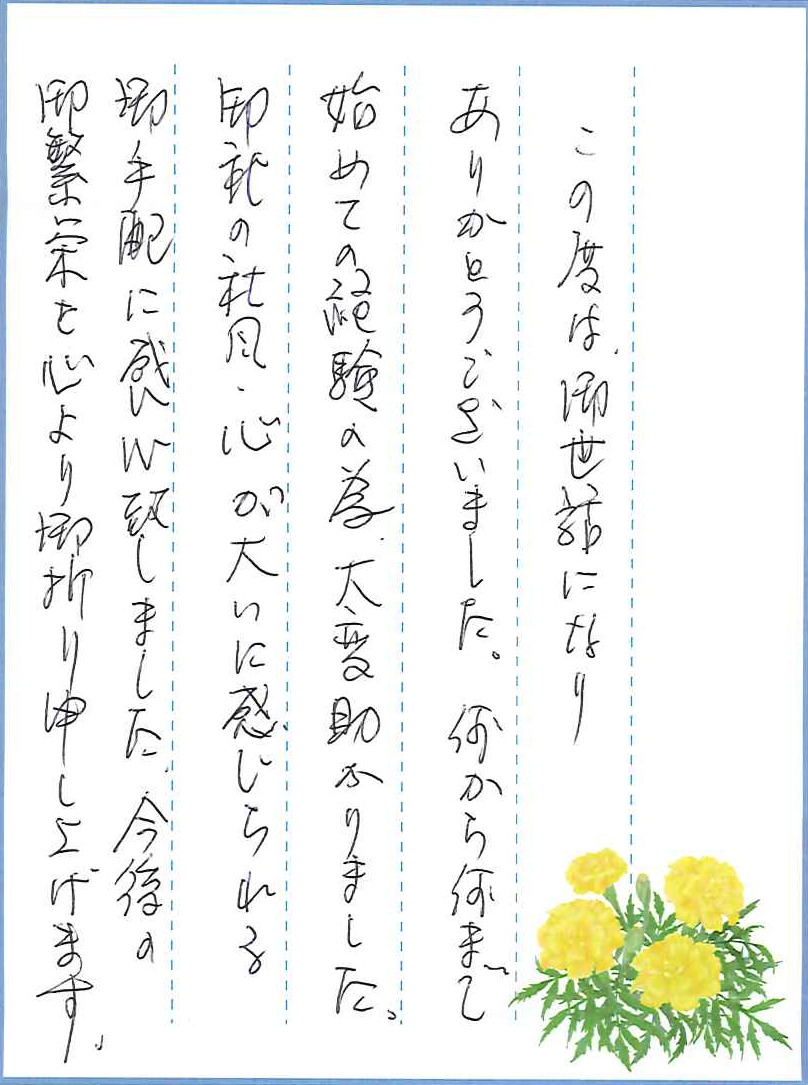 この度は、御世話になり
ありがとうございました。何から何まで
始めての経験の為、大変助かりました。
御社の社風・心が大いに感じられる
御手配に感心致しました、今後の
御繁栄を心より御祈り申し上げます。